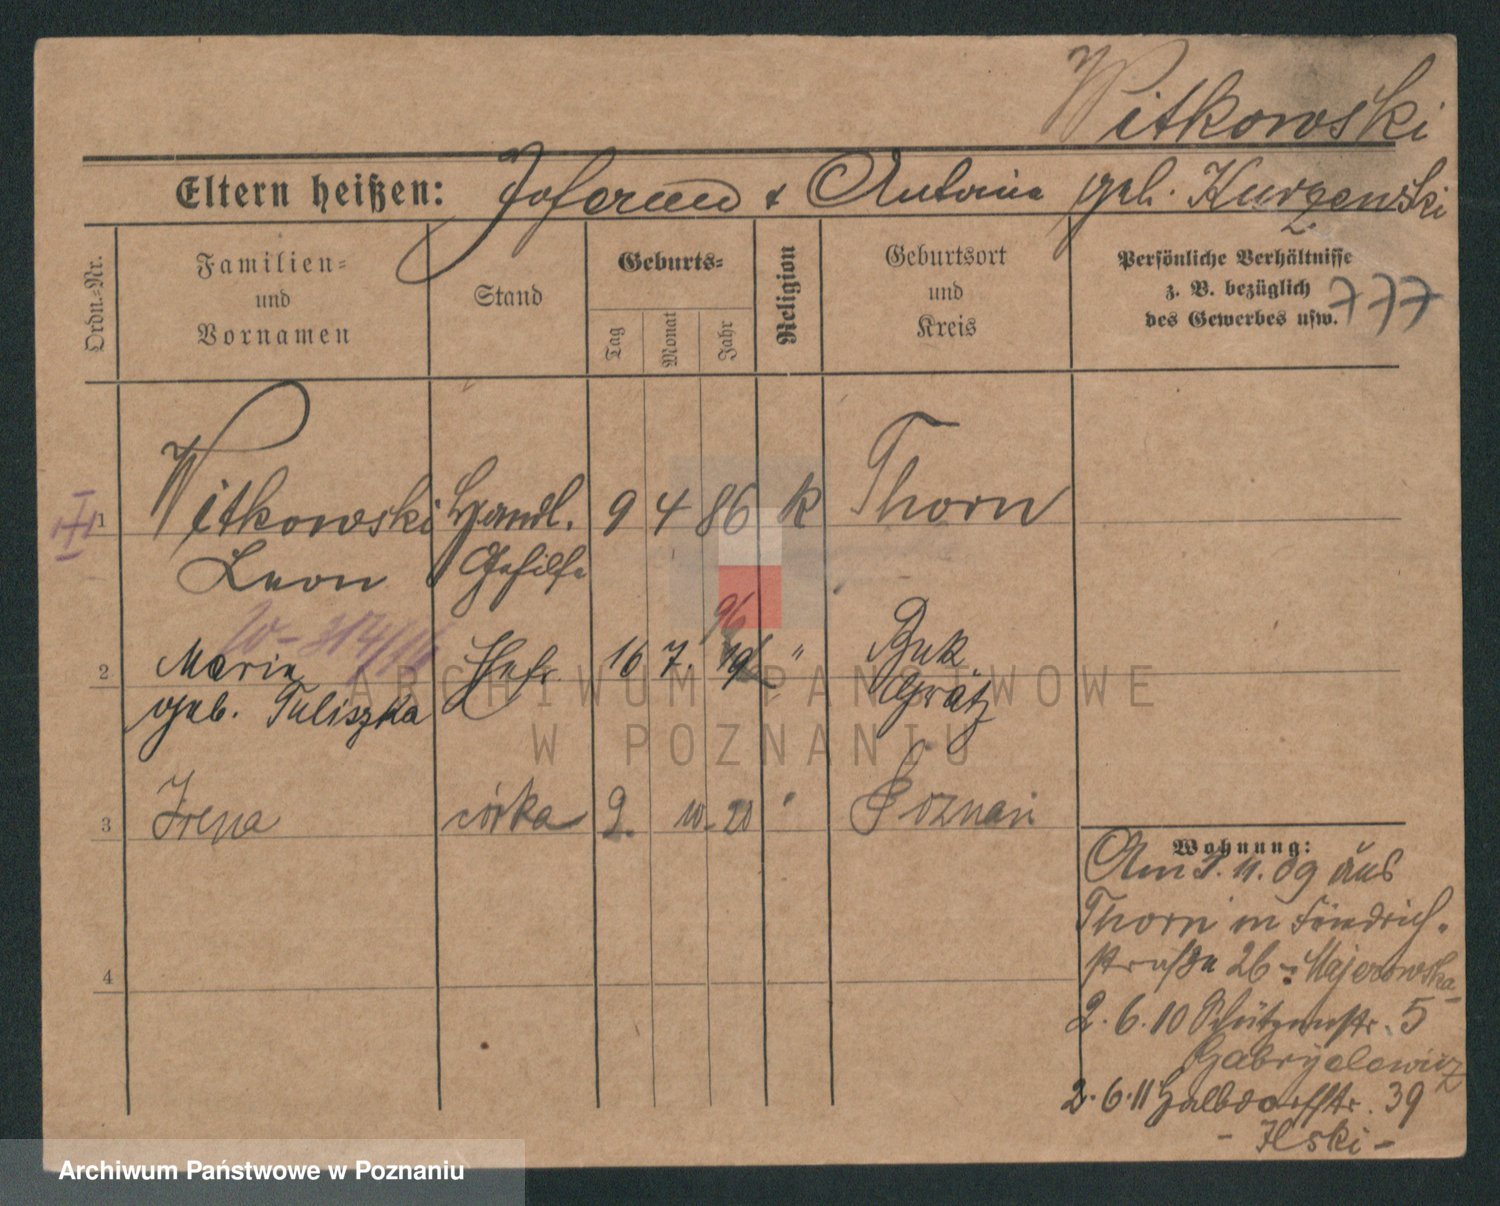 Witkowski
Eltern heißen: Johann & Antonie geb. Kurzewski
Ordn.-Nr.
Familien-
und
Vornamen
Stand
Geburts-
Tag
Monat
Jahr
Religion
Geburtsort
und
Kreis
Persönliche Verhältnisse
z. B. bezüglich
des Gewerbes usw.
777
1 Witkowski Handl. 9 4 86 k Thorn
Leon Gehilfe
W-314/14
96
2 Marie Ehefr. 16 7. " Buk
geb. Tuliszka Grätz
3 Irena córka 2. 10 - 20 " Poznań
4
Wohnung:
Am 1. 11. 09 aus
Thorn in Friedrich-
straße 26 - Majerowska -
2. 6. 10 Schützenstr. 5
Gabryelewicz
2. 6. 11 Halbdorfstr. 39
- Ilski -
ARCHIWUM PAŃSTWOWE
W POZNANIU
Archiwum Państwowe w Poznaniu